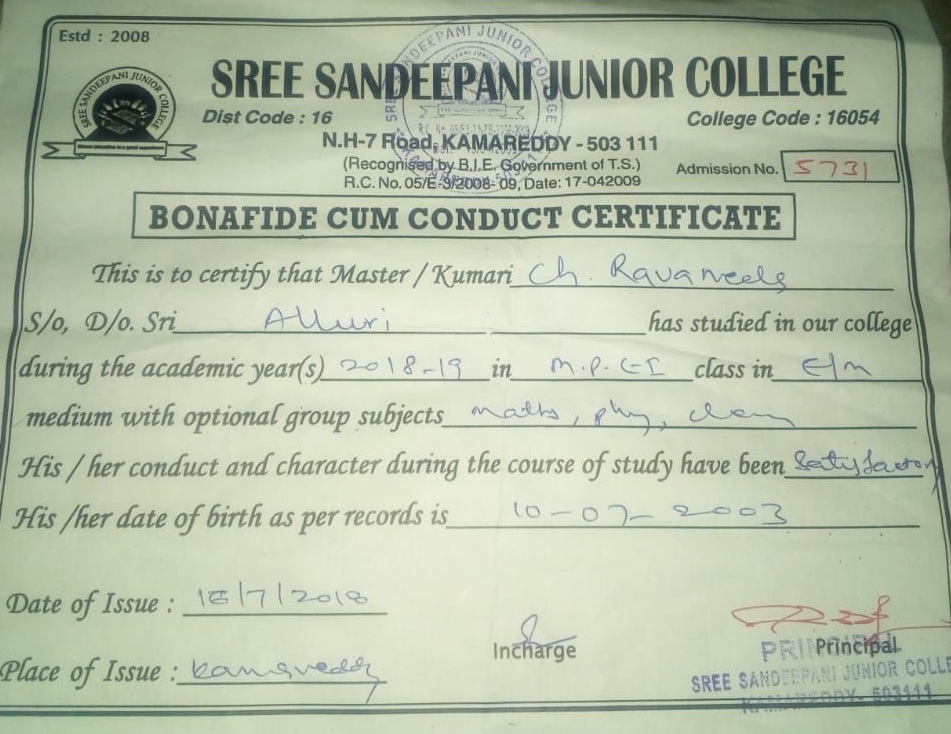 Estd : 2008
SREE SANDEEPANI JUNIOR COLLEGE
SREE SANDEEPANI JUNIOR COLLEGE
Dist Code : 16
College Code : 16054
N.H-7 Road, KAMAREDDY - 503 111
(Recognised by B.I.E. Government of T.S.)
R.C. No. 05/E-3/2008- 09, Date: 17-042009
Admission No. 5731
BONAFIDE CUM CONDUCT CERTIFICATE
This is to certify that Master / Kumari Ch. Ravaneela
S/o, D/o. Sri Alluri has studied in our college
during the academic year(s) 2018-19 in M.P.C-I class in E/m
medium with optional group subjects maths, phy, chem
His / her conduct and character during the course of study have been Satisfactory
His /her date of birth as per records is 10-07-2003
Date of Issue : /7/2018
Incharge
Principal
PRINCIPAL
Place of Issue : kamareddy
SREE SANDEEPANI JUNIOR COLLE
KAMAREDDY- 503111